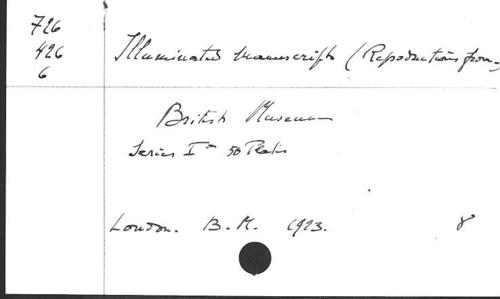 726
426
6
Illuminated Manuscripts (Reproductions from—
British Museum
Series I— 50 Plates
London. B. M. 1923. 8